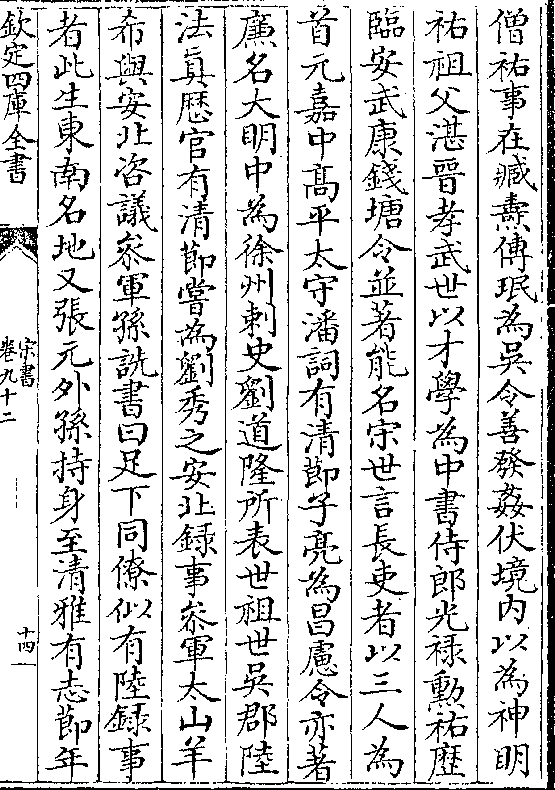 僧祐事在臧燾傳珉為吳令善發姦伏境内以為神明
祐祖父湛晉孝武世以才學為中書侍郎光祿勲祐歴
臨安武康錢塘令並著能名宋世言長吏者以三人為
首元嘉中髙平太守潘詞有清節子亮為昌慮令亦著
廉名大明中為徐州刺史劉道隆所表世祖世吳郡陸
法真歴官有清節嘗為劉秀之安北録事叅軍太山羊
希與安北咨議叅軍孫詵書曰足下同僚似有陸録事
者此生東南名地又張元外孫持身至清雅有志節年
欽定四庫全書
宋書
卷九十二
十四